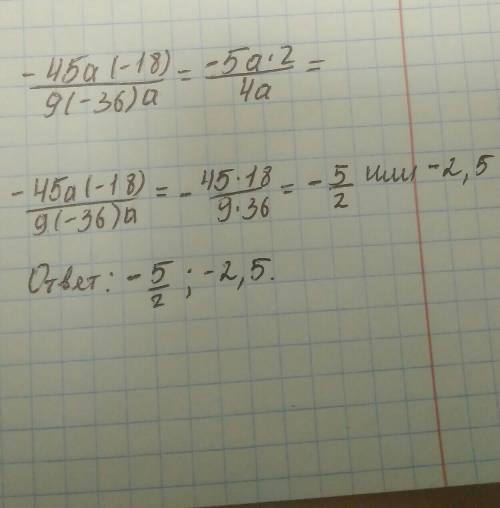 -45a(-18)/9(-36)a = -5a·2/4a =
-45a(-18)/9(-36)a = - 45·18/9·36 = - 5/2 или -2,5
Ответ: - 5/2 ; -2,5.